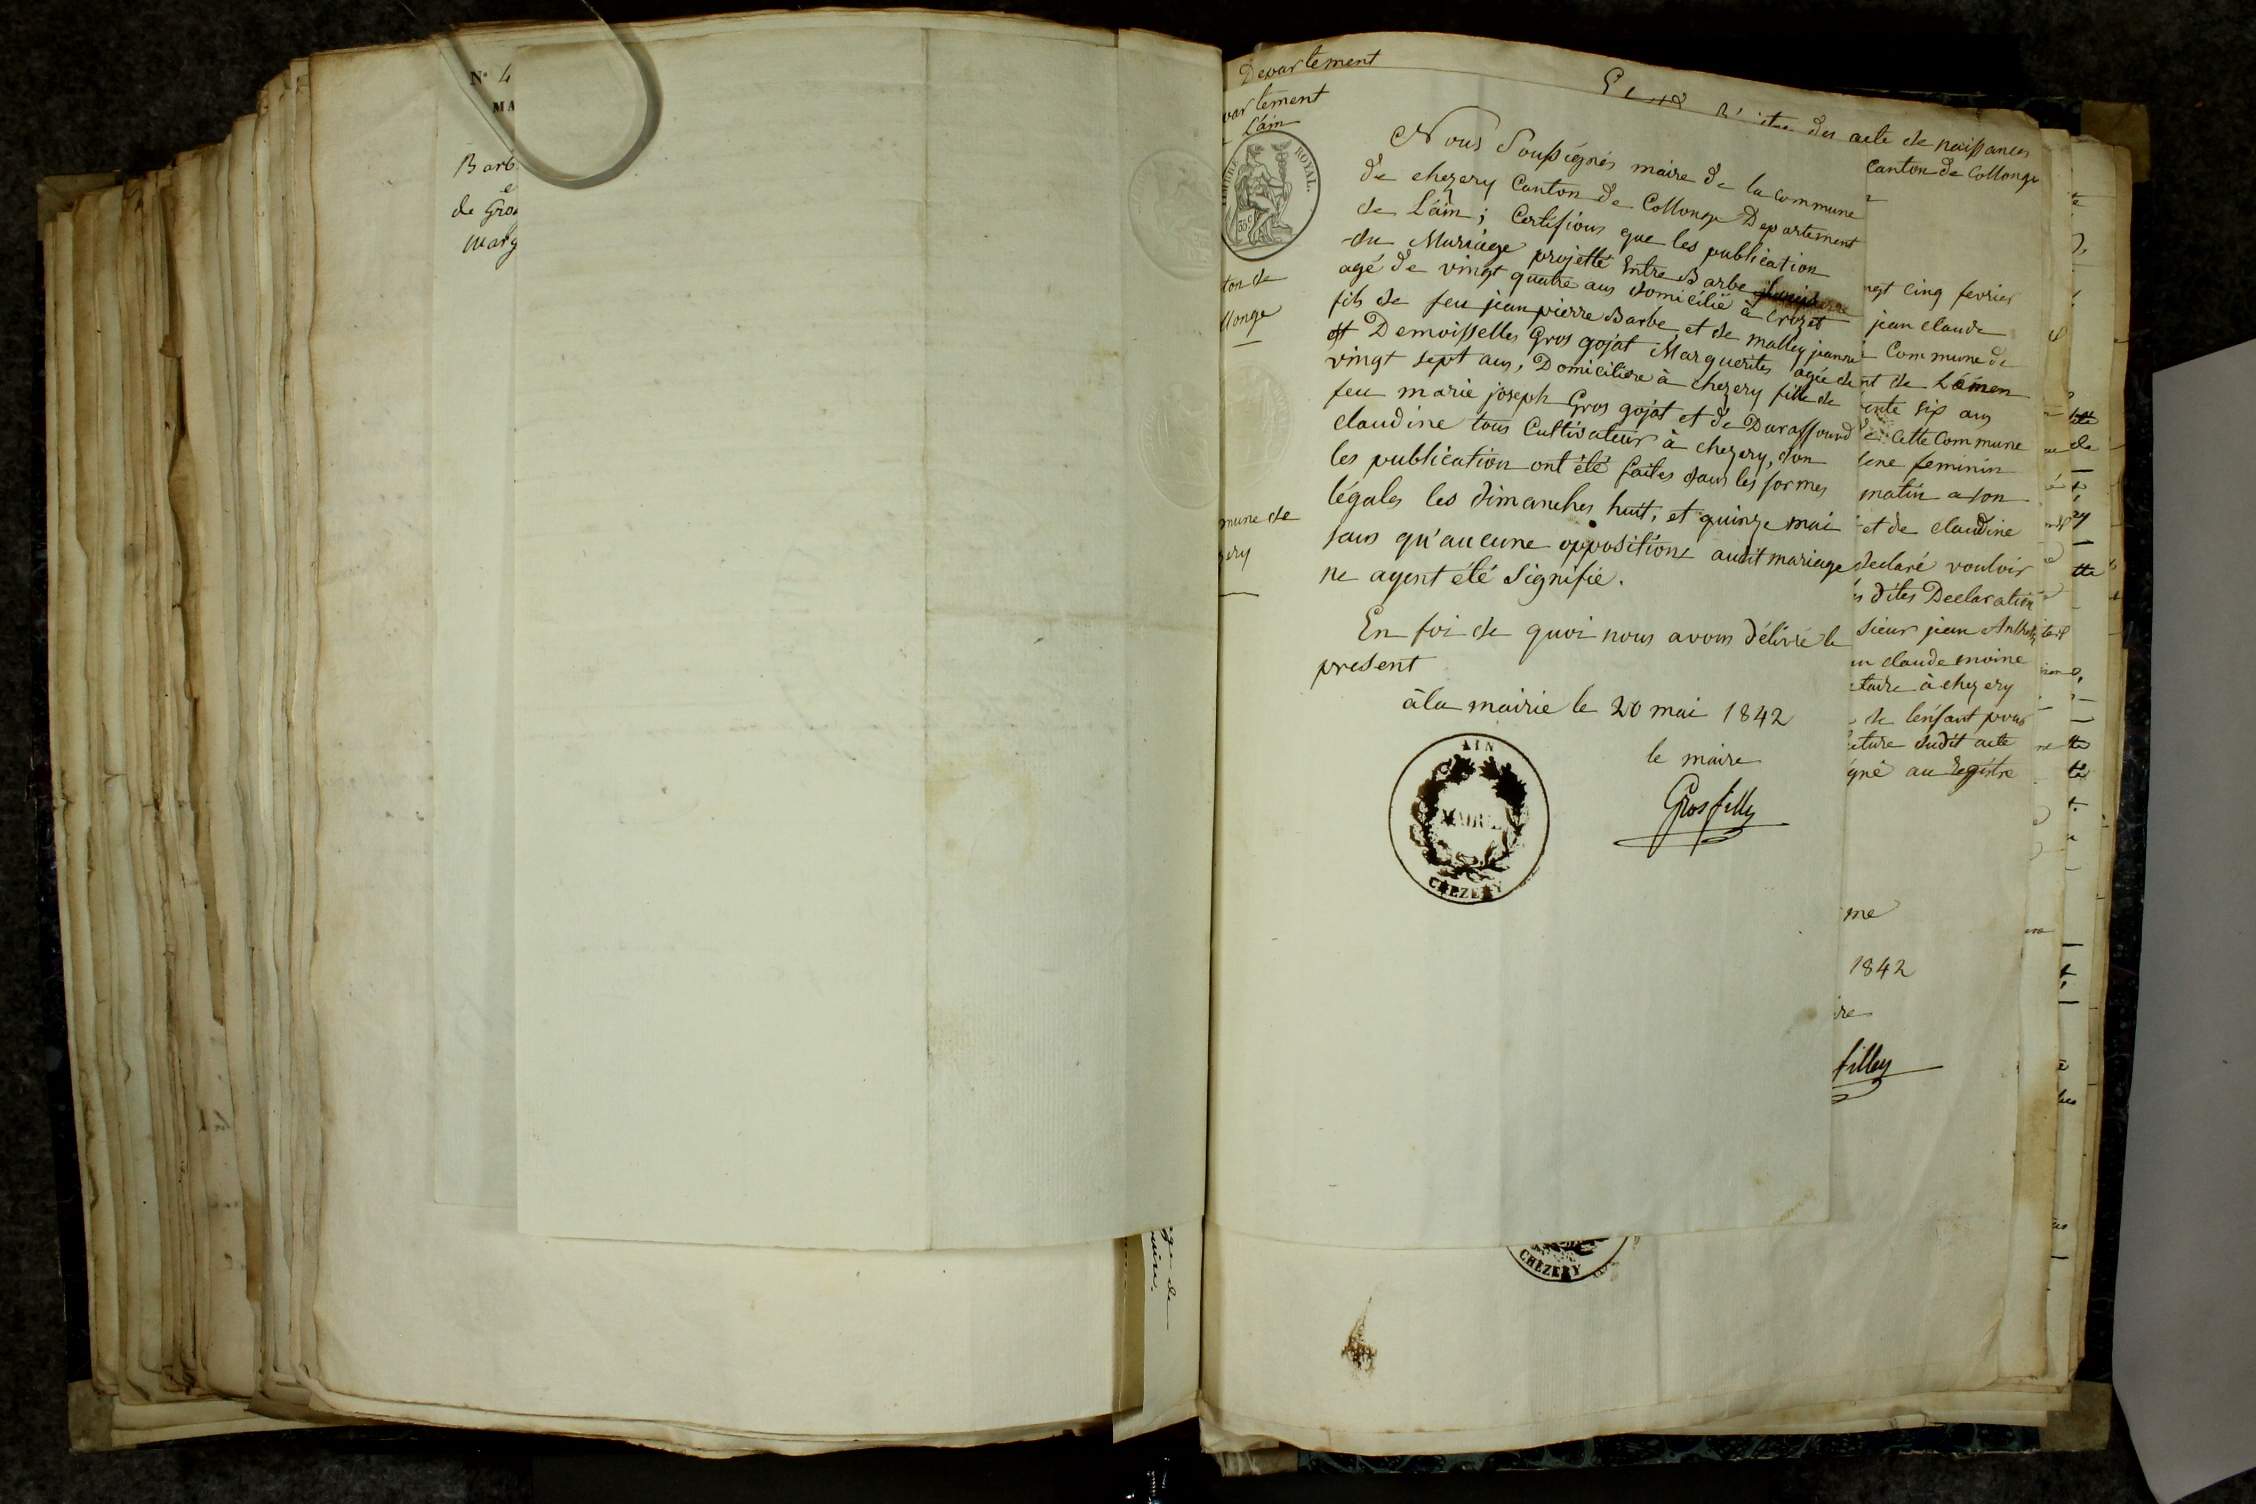 N° 4
MA
Barb
e
de Gros
Marg
Departement
artement
L'ain
TIMBRE ROYAL.
35c
ton de
llonge
mune de
zery
Nous Soussignés maire de la commune
de chezery Canton de Collonge Departement
de L'ain; Certifions que les publication
du Mariage projetté Entre Barbe
agé de vingt quatre ans domicilié à Crozet
fils de feu jean pierre Barbe, et de malley jeanne
et Demoisselles Gros gojat Marguerites agée de
vingt sept ans, Domiciliere à chezery fille de
feu marie joseph Gros gojat et de Duraffourd
claudine tous Cultivateur à chezery, don
les publication ont été faites dans les formes
légales les dimanches huit, et quinze mai
sans qu'aucune oppositions audit mariage
ne ayent été Signifié.
En foi de quoi nous avons délivré le
present
à la mairie le 20 mai 1842
le maire
Grosfilley
AIN
MAIRIE
CHEZERY
des acte de naissances
Canton de Collonge
ngt cinq fevrier
jean claude
Commune de
nt de L'ain en
ente six ans
de cette Commune
sexe feminin
matin a son
et de claudine
declaré vouloir
s dites Declaration
sieur jean Anthel
an claude moine
etaire à chezery
de l'enfant pour
cture dudit acte
gné au Registre
me
1842
ire
filley
CHEZERY